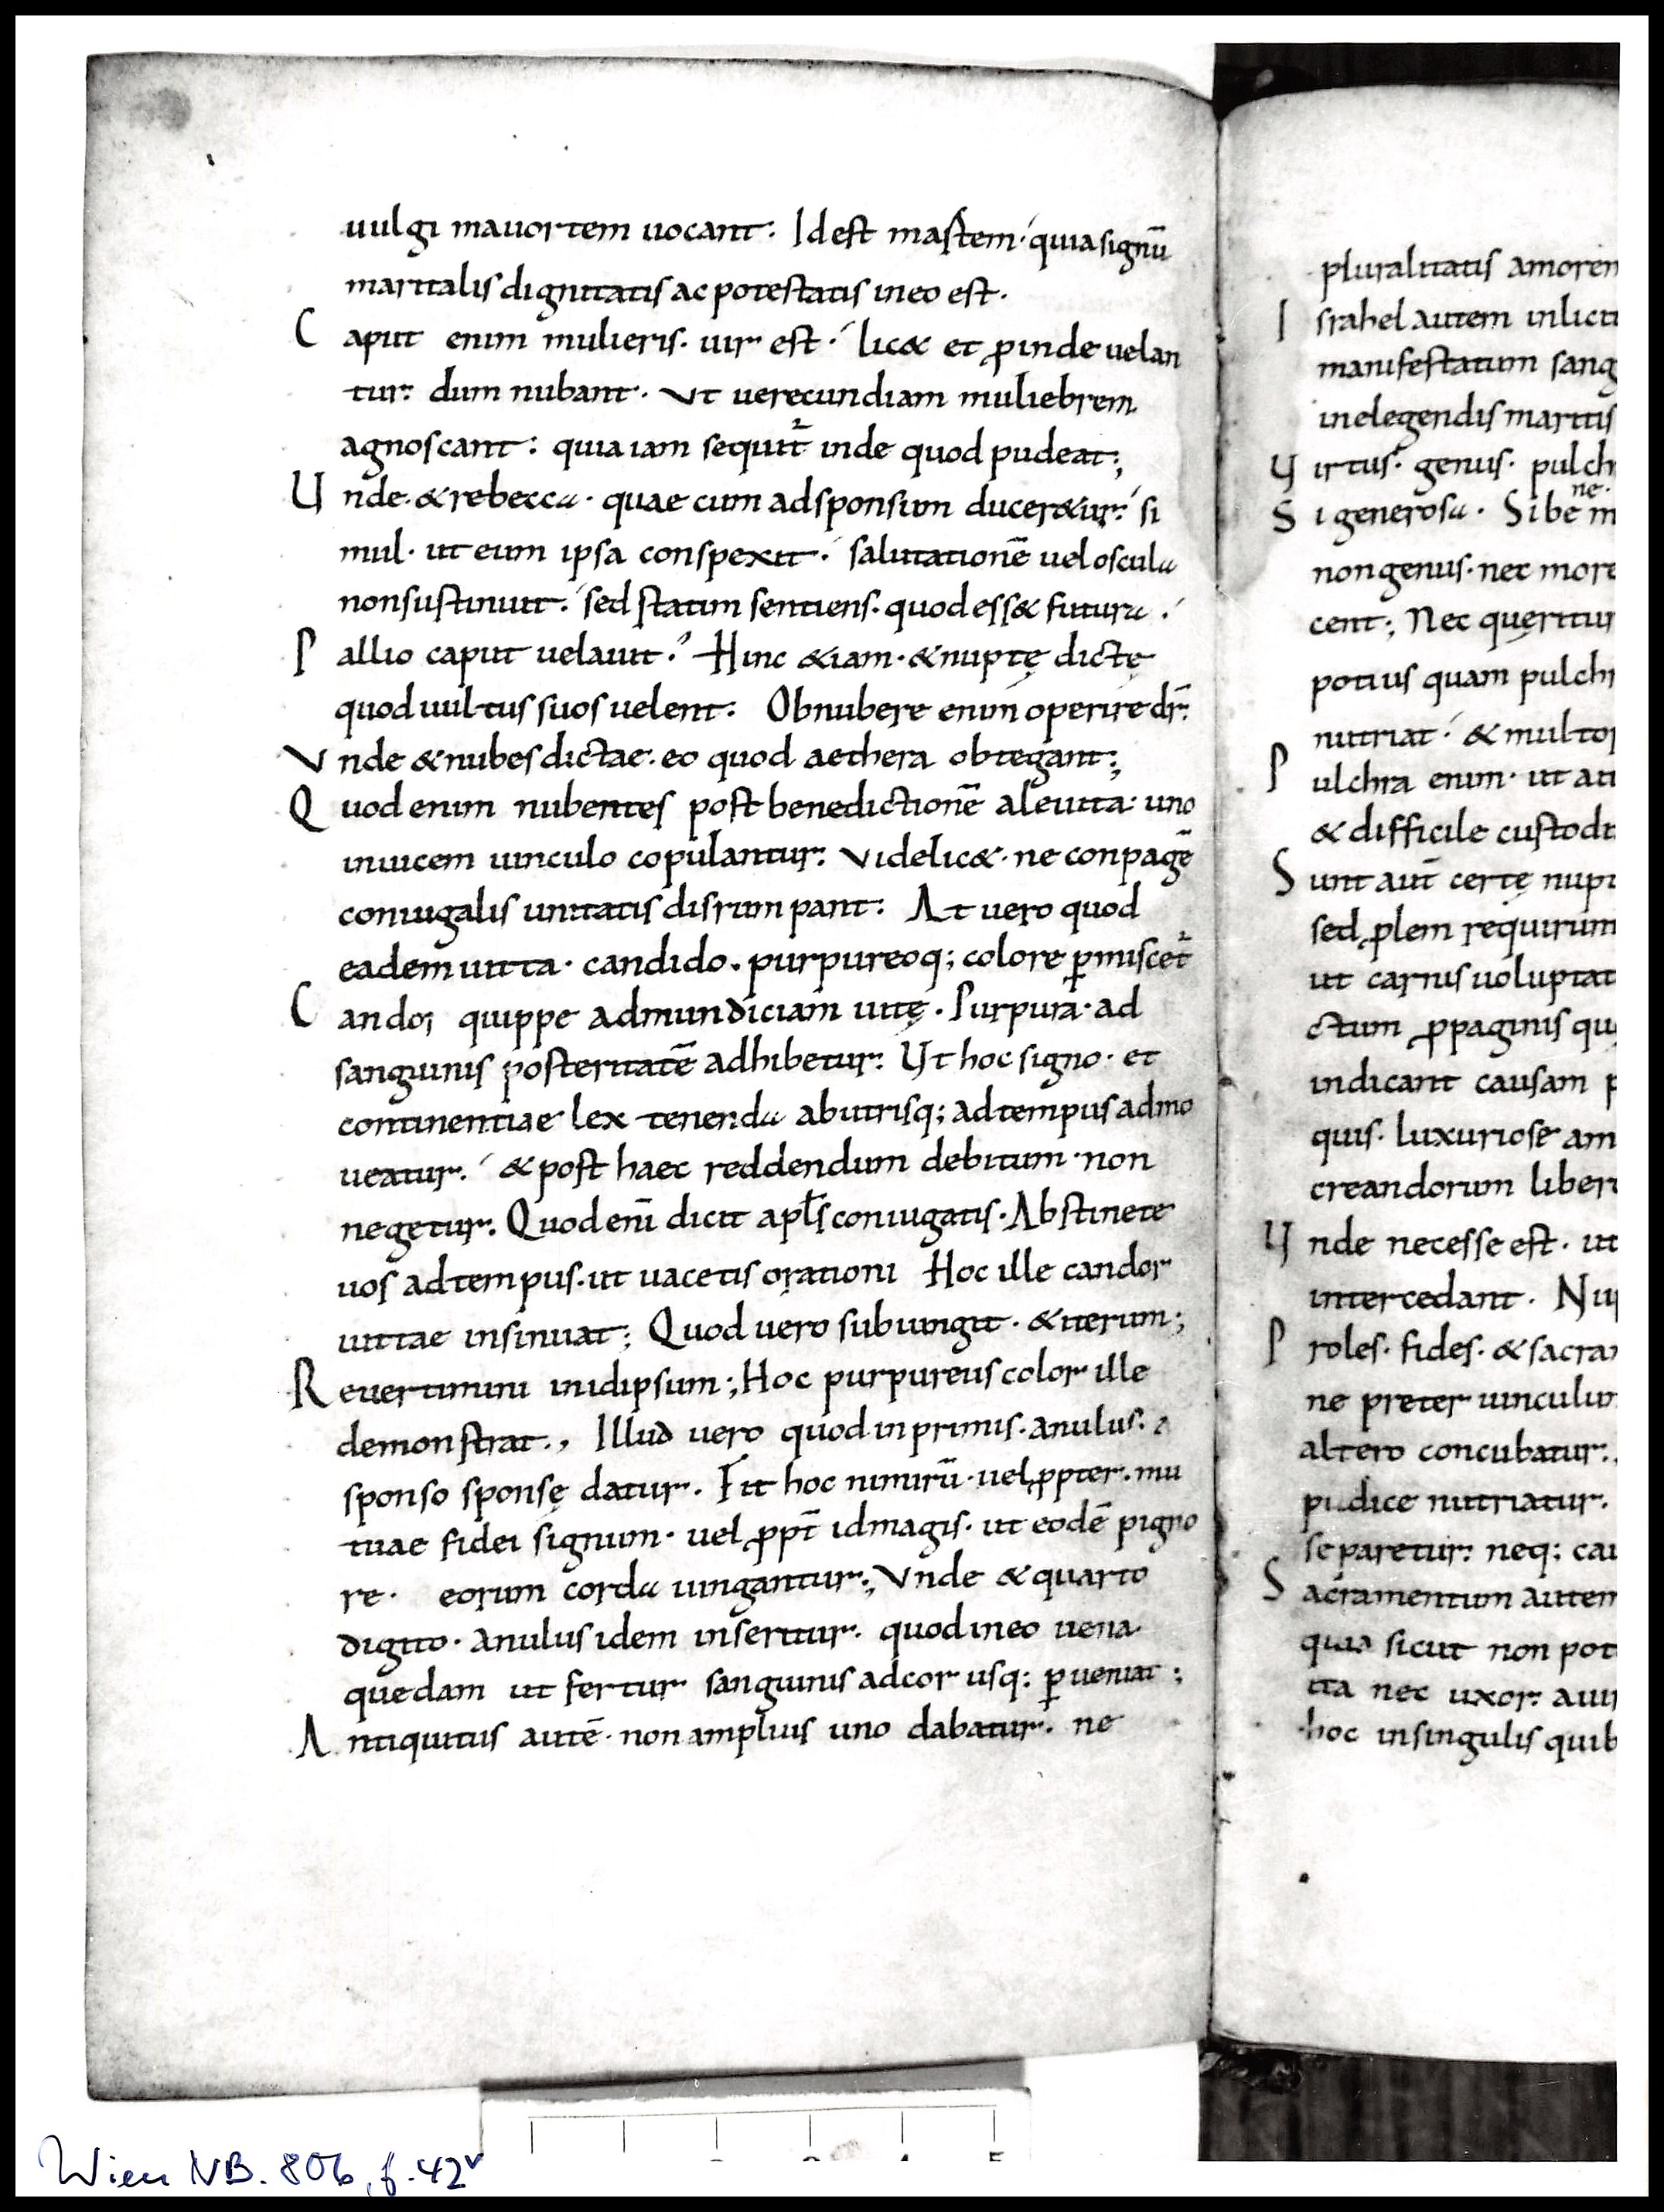 uulgi mauortem uocant. Id est mastem. quia signū
maritalis dignitatis ac potestatis in eo est.
Caput enim mulieris. uir est. lic& et ꝓinde uelan
tur. dum nubant. Vt uerecundiam muliebrem
agnoscant: quia iam sequit᷑ inde quod pudeat;
Unde. & rebecca. quae cum ad sponsum ducer&ur. si
mul. ut eum ipsa conspexit. salutationē uel oscula
non sustinuit. sed statim sentiens. quod ess& futura.
Pallio caput uelauit. Hinc &iam. & nuptę dictę
quod uultus suos uelent. Obnubere enim operire dr̄.
Vnde & nubes dictae. eo quod aethera obtegant;
Quod enim nubentes post benedictionē a leuita. uno
inuicem uinculo copulantur. Videlic&. ne conpagē
coniugalis unitatis disrumpant. At uero quod
eadem uitta. candido. purpureoq; colore ꝑmiscet᷑
Candor quippe ad mundiciam uitę. Purpura. ad
sanguinis posteritatē adhibetur. Ut hoc signo. et
continentiae lex tenenda ab utrisq; ad tempus admo
ueatur. & post haec reddendum debitum. non
negetur. Quod enī dicit apls̄ coniugatis. Abstinete
uos ad tempus. ut uacetis orationi Hoc ille candor
uittae insinuat; Quod uero subiungit. & iterum;
Reuertimini in id ipsum; Hoc purpureus color ille
demonstrat., Illud uero quod in primis. anulus. a
sponso sponsę datur. Fit hoc nimirū. uel ꝓpter. mu
tuae fidei signum. uel ꝓpt̄ id magis. ut eodē pigno
re. eorum corda iungantur; Vnde & quarto
digito. anulus idem inseritur. quod in eo uena
quedam ut fertur sanguinis ad cor usq; ꝑueniat;
Antiquitus autē. non amplius uno dabatur. ne
pluralitatis amorem
Israhel autem inlicit
manifestatum sang
in elegendis maritis
Uirtus. genus. pulch
Si generosa. Si bene m
non genus. nec more
cent; Nec quęritur
potius quam pulchr
nutriat. & multor
Pulchra enim. ut ait
& difficile custodi
Sunt aut̄ certę nupt
sed ꝓlem requirun
ut carnis uoluptat
ctum ꝓpaginis qu
indicant causam p
quis. luxuriose am
creandorum liber
Unde necesse est. ut
intercedant. Nup
Proles. fides. & sacra
ne preter uinculum
altero concubatur.
pudice nutriatur.
separetur. neq; cau
Sacramentum autem
quia sicut non pot
ita nec uxor. a uir
hoc in singulis quib
Wien NB. 806, f. 42ᵛ